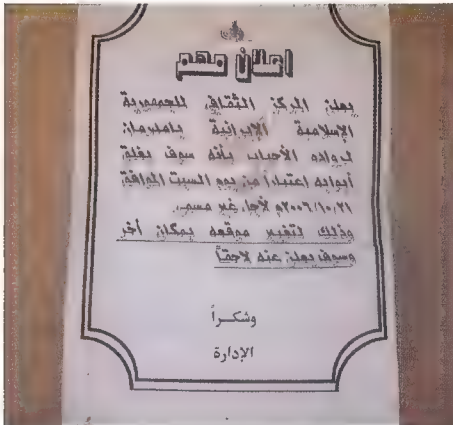 اعلان مهم
يعلن المركز الثقافي للجمهورية
الإسلامية الإيرانية بامدرمان
لرواده الأحباب بأنه سوف يغلق
أبوابه اعتباراً من يوم السبت الموافق
٢٠٠٦/١٠/٢١م لأجل غير مسمى.
وذلك لتغيير موقعه بمكان آخر
وسوف يعلن عنه لاحقاً
وشكراً
الإدارة